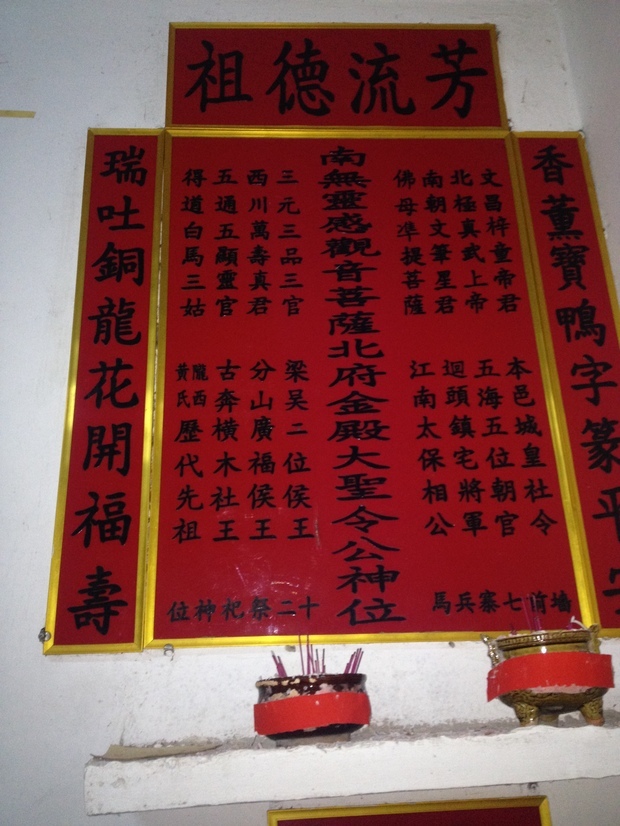 祖德流芳
香薰寶鴨字篆平安
文昌梓童帝君
北極真武上帝
南朝文筆星君
佛母凖提菩薩
本邑城皇社令
五海五位朝官
迴頭鎮宅將軍
江南太保相公
墙前七寨兵馬
南無靈感觀音菩薩北府金殿大聖令公神位
三元三品三官
西川萬壽真君
五通五顯靈官
得道白馬三姑
梁吴二位侯王
分山廣福侯王
古奔橫木社王
隴西黃氏歷代先祖
十二祭祀神位
瑞吐銅龍花開福壽